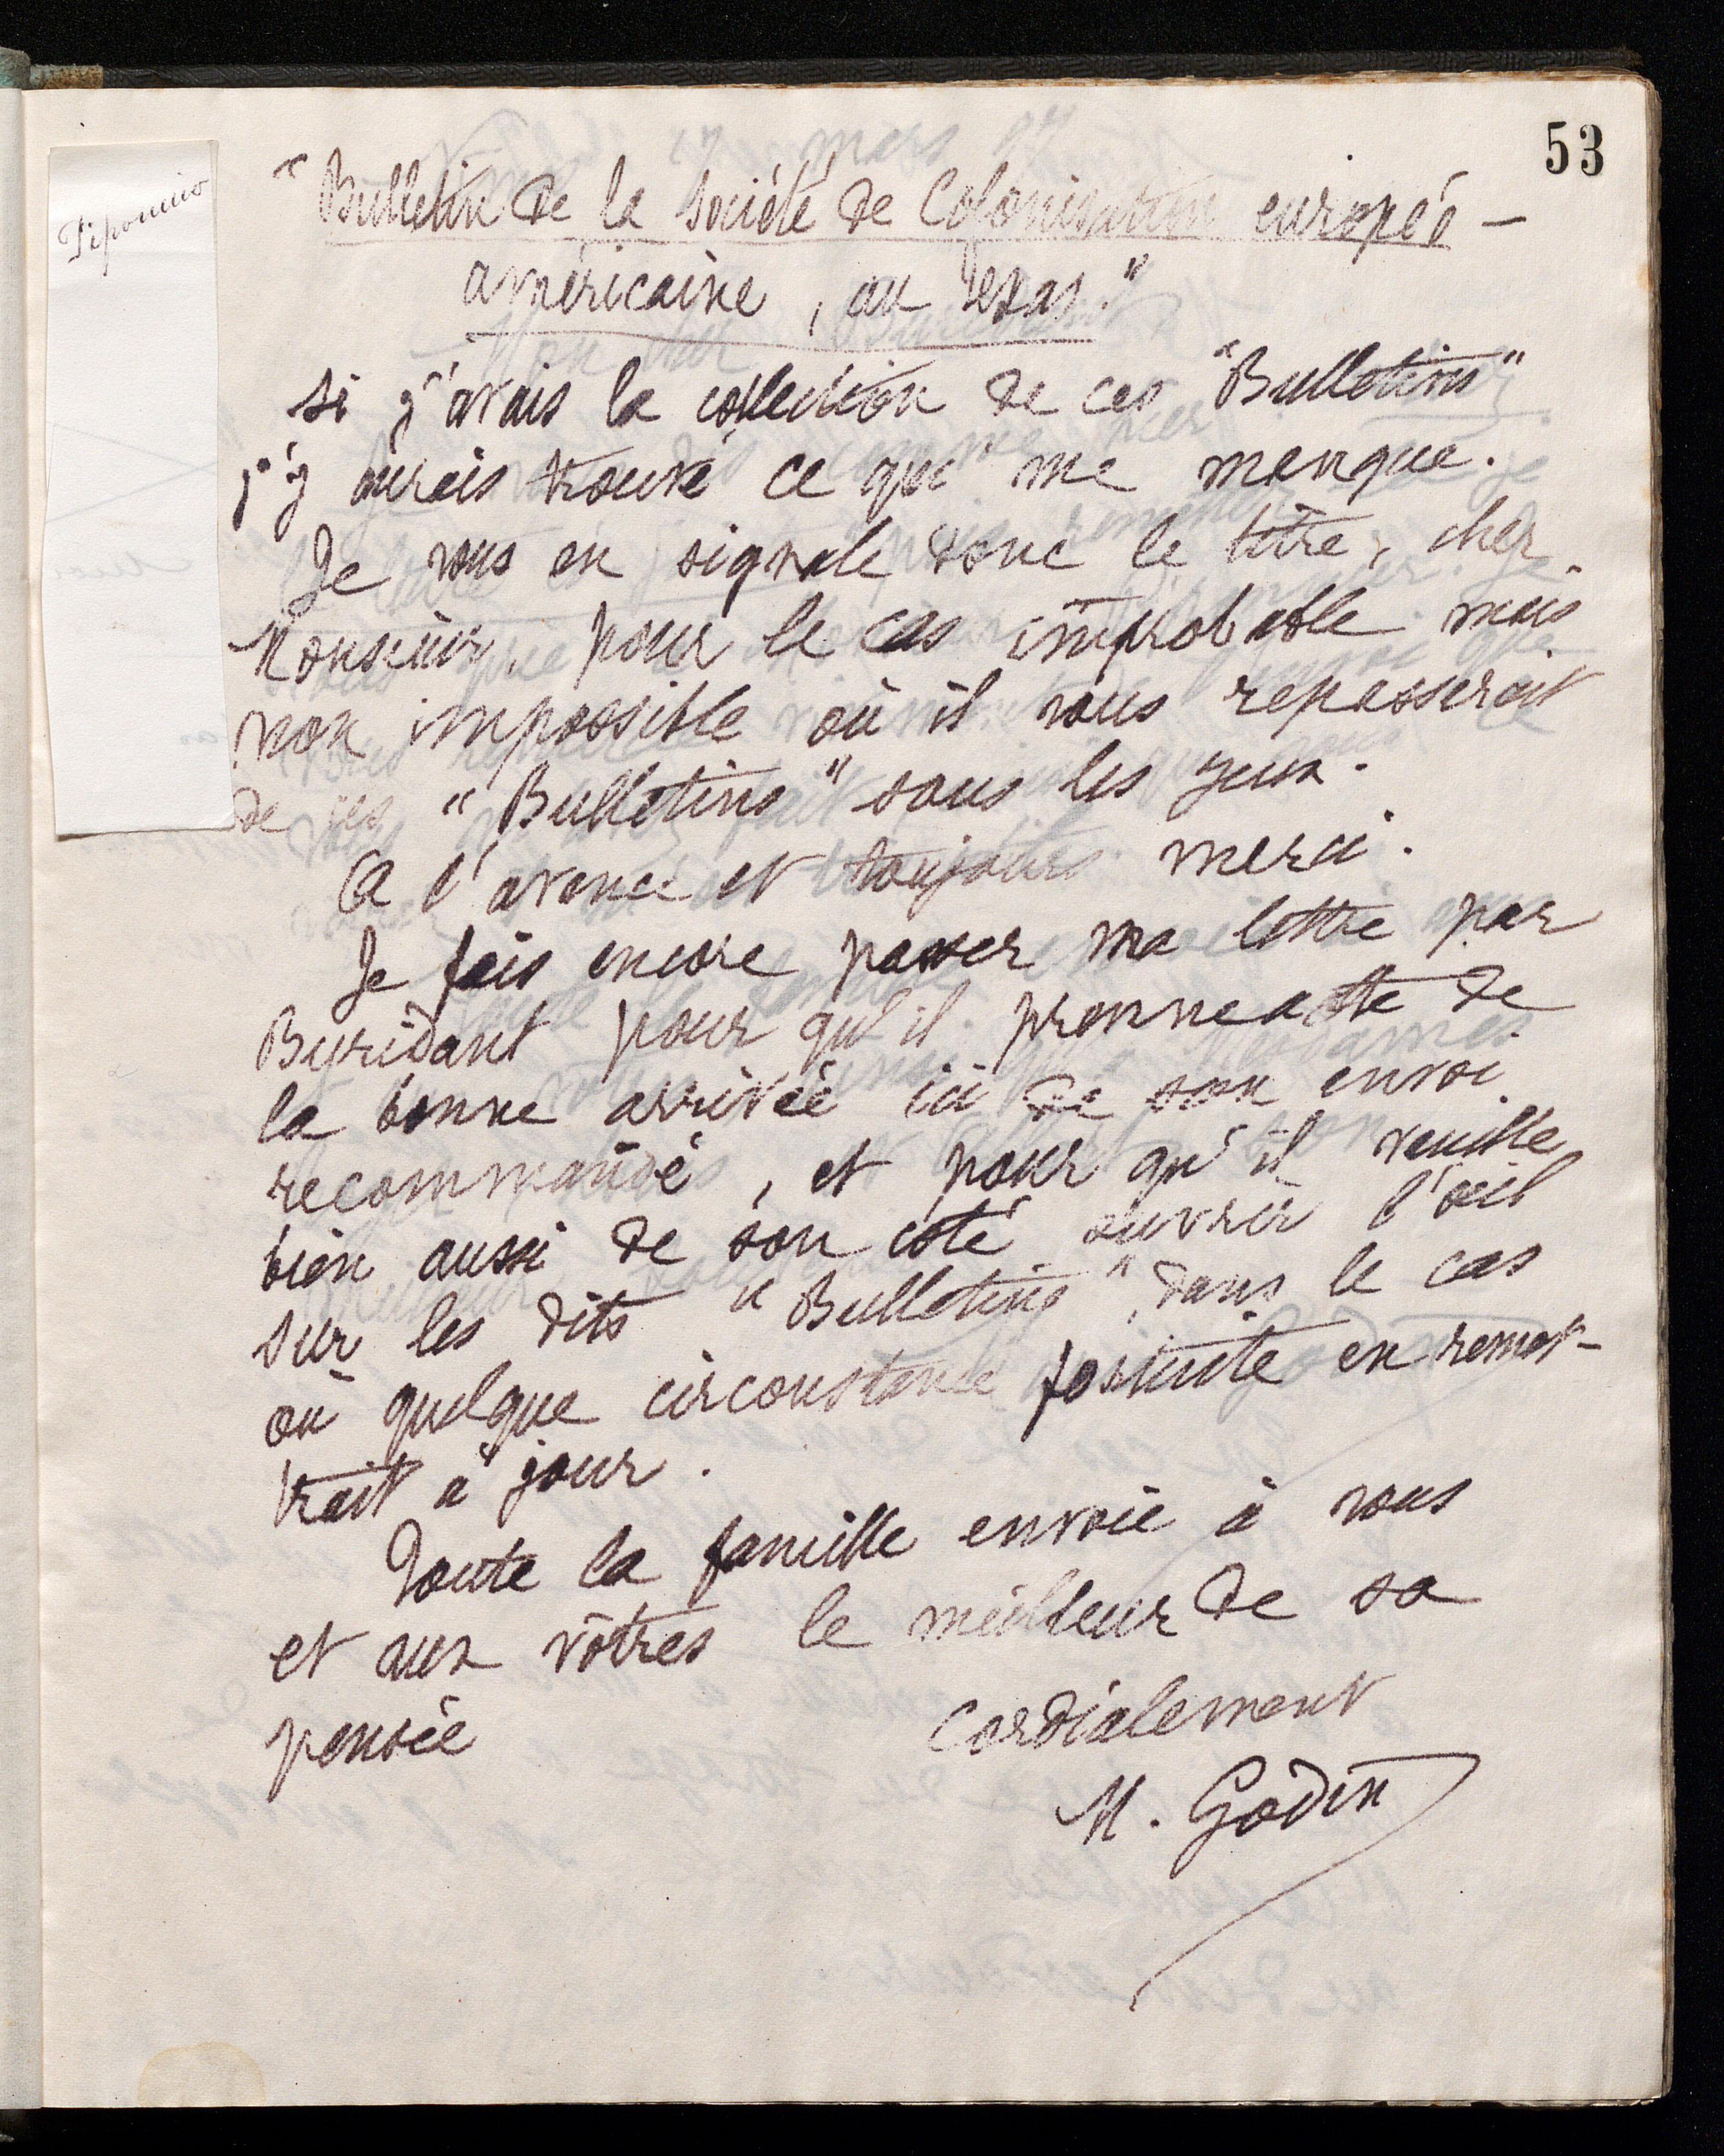 53
"Bulletin de la Société de Colonisation européo-
américaine, au Texas."
Si j'avais la collection de ces "Bulletins"
j'y aurais trouvé ce qui me manque.
Je vous en signale donc le titre, cher
Monsieur, pour le cas improbable mais
non impossible où il vous repasserait
de ces "Bulletins" sous les yeux.
A l'avance et toujours merci.
Je fais encore passer ma lettre par
Buridant pour qu'il prenne acte de
la bonne arrivée ici de son envoi
recommandé, et pour qu'il veuille
bien aussi de son côté ouvrir l'œil
sur les dits "Bulletins" dans le cas
où quelque circonstance fortuite en remet-
trait à jour.
Toute la famille envoie à vous
et aux vôtres le meilleur de sa
pensée
Cordialement
M. Godin